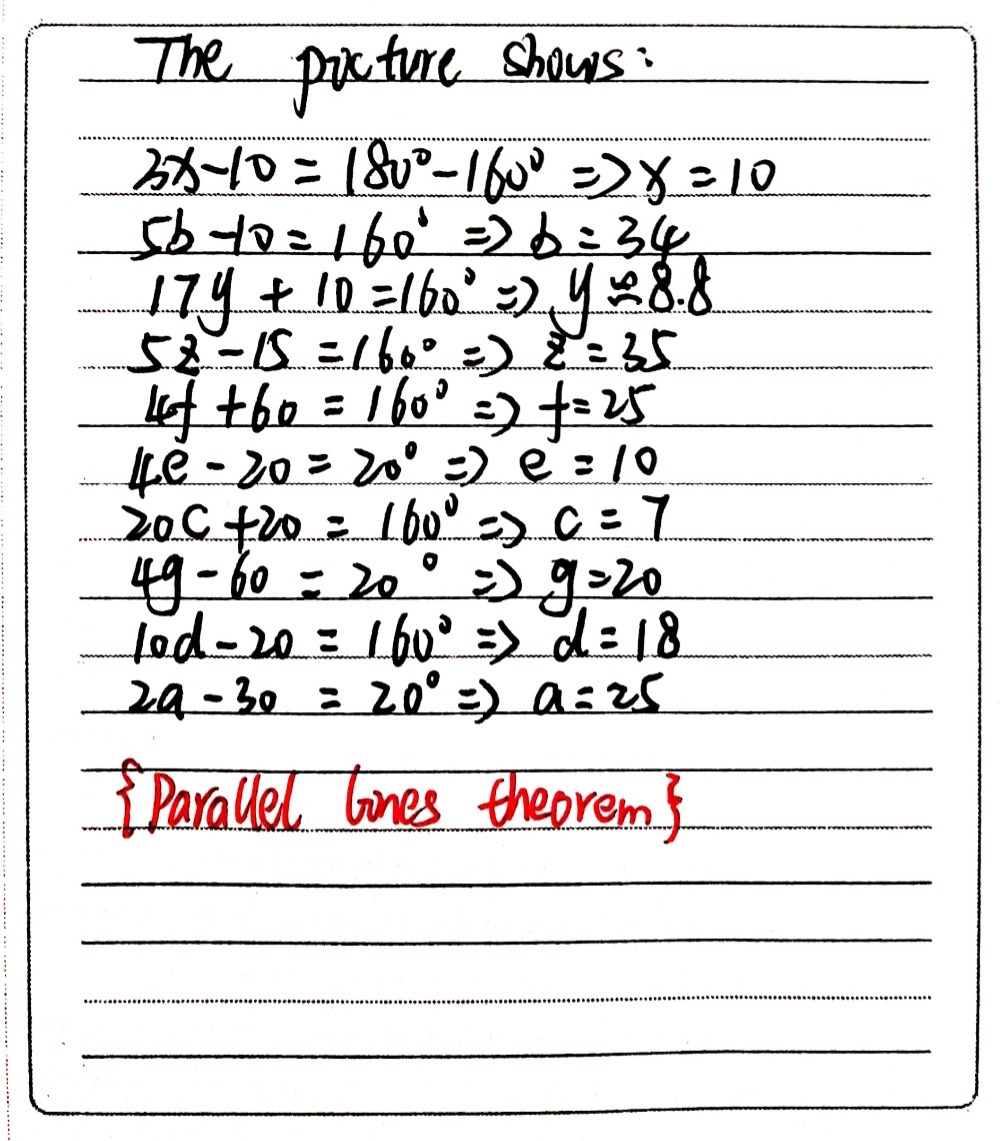 The picture shows:
3x-10 = 180°-160° => x = 10
5b-10 = 160° => b = 34
17y + 10 = 160° => y ≌ 8.8
5z - 15 = 160° => z = 35
4f + 60 = 160° => f = 25
4e - 20 = 20° => e = 10
20c + 20 = 160° => c = 7
4g - 60 = 20° => g = 20
10d - 20 = 160° => d = 18
2a - 30 = 20° => a = 25
{Parallel lines theorem}